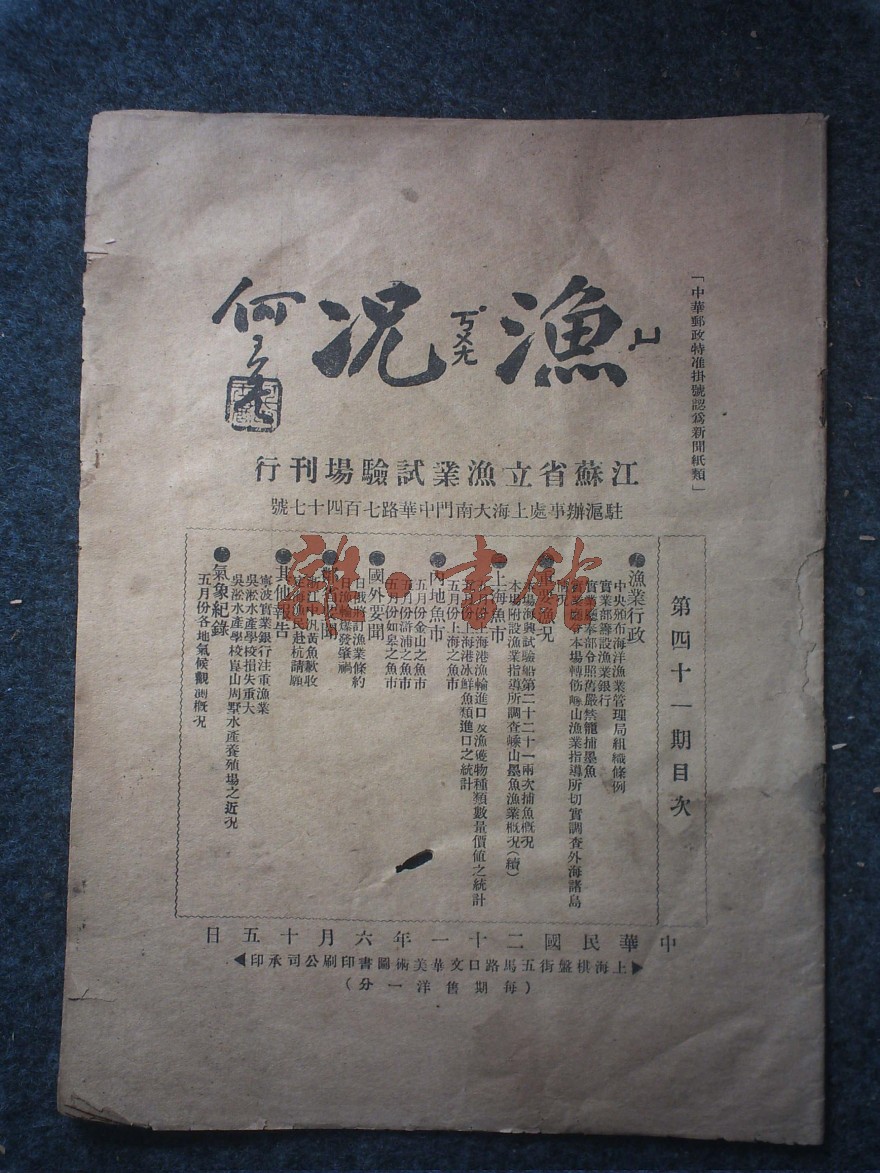 「中華郵政特准掛號認為新聞紙類」
漁況
ㄩˊ
ㄎㄨㄤ
何
江蘇省立漁業試驗場刊行
駐滬辦事處上海大南門中華路七百四十七號
第四十一期目次
●漁業行政
中央頒布海洋漁業管理局組織條例
實業部籌設漁業銀行
實業廳奉部令照舊嚴禁籠捕墨魚
實業廳令本場轉飭嵊山漁業指導所切實調查外海諸島
情況
漁況
本場海興試驗船第二十二十一兩次捕魚概況
本場附設漁業指導所調查嵊山墨魚漁業概況(續)
●上海魚市
五月份上海港漁輪進口及漁獲物種類數量價值之統計
五月份上海港冰鮮魚類進口之統計
五月份上海之魚市
●內地魚市
五月份金山之魚市
五月份滸浦之魚市
五月份如皋之魚市
●國外要聞
日俄將訂漁業條約
日漁輪爆發肇禍
浙江中汎黃魚歉收
定海漁民赴杭請願
●其他報告
寧波實業銀行注重漁業
吳淞水產學校損失重大
吳淞水產學校崑山周墅水產養殖場之近況
●氣象紀錄
五月份各地氣候觀測概況
中華民國二十一年六月十五日
▶上海棋盤街五馬路口文華美術圖書印刷公司承印◀
(每期售洋一分)
雜·書館